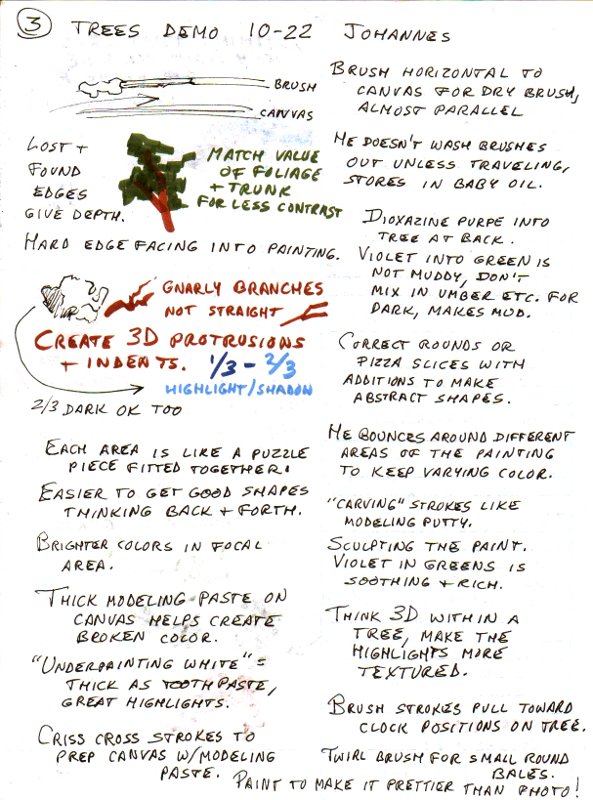 3 TREES DEMO 10-22 JOHANNES
BRUSH
CANVAS
LOST +
FOUND
EDGES
GIVE DEPTH.
MATCH VALUE
OF FOLIAGE
+ TRUNK
FOR LESS CONTRAST
HARD EDGE FACING INTO PAINTING.
GNARLY BRANCHES
NOT STRAIGHT
CREATE 3D PROTRUSIONS
+ INDENTS. 1/3 - 2/3
HIGHLIGHT/SHADOW
2/3 DARK OK TOO
EACH AREA IS LIKE A PUZZLE
PIECE FITTED TOGETHER!
EASIER TO GET GOOD SHAPES
THINKING BACK + FORTH.
BRIGHTER COLORS IN FOCAL
AREA.
THICK MODELING PASTE ON
CANVAS HELPS CREATE
BROKEN COLOR.
"UNDERPAINTING WHITE" =
THICK AS TOOTHPASTE,
GREAT HIGHLIGHTS.
CRISS CROSS STROKES TO
PREP CANVAS W/MODELING
PASTE.
BRUSH HORIZONTAL TO
CANVAS FOR DRY BRUSH,
ALMOST PARALLEL
HE DOESN'T WASH BRUSHES
OUT UNLESS TRAVELING,
STORES IN BABY OIL.
DIOXAZINE PURPE INTO
TREE AT BACK.
VIOLET INTO GREEN IS
NOT MUDDY, DON'T
MIX IN UMBER ETC. FOR
DARK, MAKES MUD.
CORRECT ROUNDS OR
PIZZA SLICES WITH
ADDITIONS TO MAKE
ABSTRACT SHAPES.
HE BOUNCES AROUND DIFFERENT
AREAS OF THE PAINTING
TO KEEP VARYING COLOR.
"CARVING" STROKES LIKE
MODELING PUTTY.
SCULPTING THE PAINT.
VIOLET IN GREENS IS
SOOTHING + RICH.
THINK 3D WITHIN A
TREE, MAKE THE
HIGHLIGHTS MORE
TEXTURED.
BRUSH STROKES PULL TOWARD
CLOCK POSITIONS ON TREE.
TWIRL BRUSH FOR SMALL ROUND
BALES.
PAINT TO MAKE IT PRETTIER THAN PHOTO!